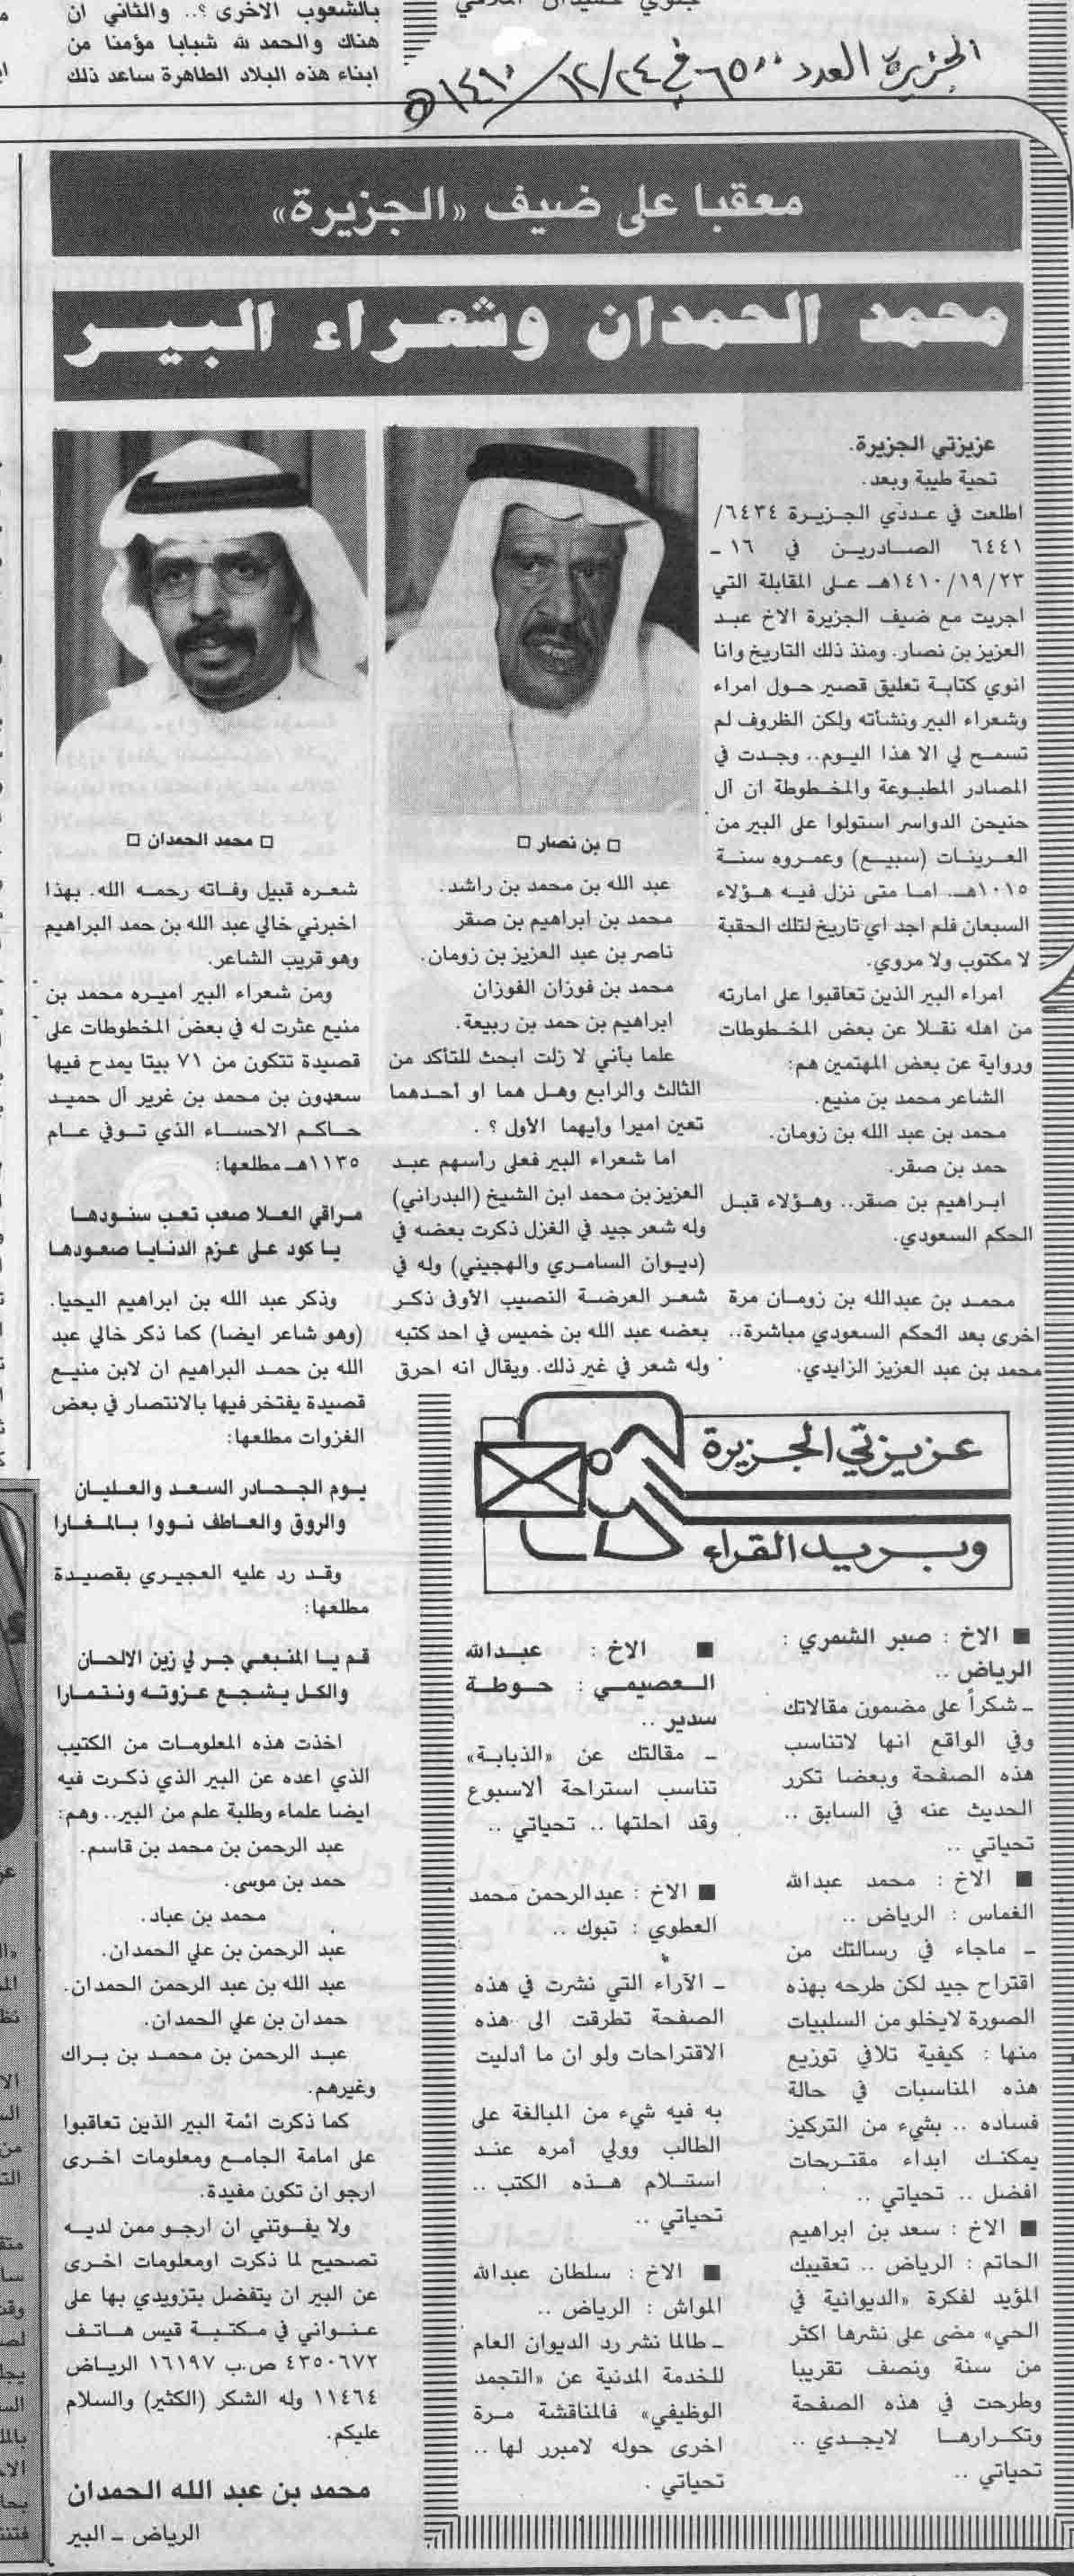 بالشعوب الاخرى ؟.. والثاني ان
هناك والحمد لله شبابا مؤمنا من
ابناء هذه البلاد الطاهرة ساعد ذلك
الجزيرة العدد ٦٥٠٠ في ١٢/٢٤/ ١٤١٠هـ
معقبا على ضيف «الجزيرة»
محمد الحمدان وشعراء البير
عزيزتي الجزيرة.
تحية طيبة وبعد.
اطلعت في عددي الجزيرة ٦٤٣٤/
٦٤٤١ الصادرين في ١٦ -
١٤١٠/١٩/٢٣هـ على المقابلة التي
اجريت مع ضيف الجزيرة الاخ عبد
العزيز بن نصار. ومنذ ذلك التاريخ وانا
انوي كتابة تعليق قصير حول امراء
وشعراء البير ونشأته ولكن الظروف لم
تسمح لي الا هذا اليوم.. وجدت في
المصادر المطبوعة والمخطوطة ان آل
حنيحن الدواسر استولوا على البير من
العرينات (سبيع) وعمروه سنة
١٠١٥هـ. اما متى نزل فيه هؤلاء
السبعان فلم اجد اي تاريخ لتلك الحقبة
لا مكتوب ولا مروي.
امراء البير الذين تعاقبوا على امارته
من اهله نقلا عن بعض المخطوطات
ورواية عن بعض المهتمين هم:
الشاعر محمد بن منيع.
محمد بن عبد الله بن زومان.
حمد بن صقر.
ابراهيم بن صقر.. وهؤلاء قبل
الحكم السعودي.
محمد بن عبدالله بن زومان مرة
اخرى بعد الحكم السعودي مباشرة..
محمد بن عبد العزيز الزايدي.
□ بن نصار □
عبد الله بن محمد بن راشد.
محمد بن ابراهيم بن صقر
ناصر بن عبد العزيز بن زومان.
محمد بن فوزان الفوزان
ابراهيم بن حمد بن ربيعة.
علما بأني لا زلت ابحث للتأكد من
الثالث والرابع وهل هما او أحدهما
تعين اميرا وأيهما الأول ؟ .
اما شعراء البير فعلى رأسهم عبد
العزيز بن محمد ابن الشيخ (البدراني)
وله شعر جيد في الغزل ذكرت بعضه في
(ديوان السامري والهجيني) وله في
شعر العرضة النصيب الأوفى ذكر
بعضه عبد الله بن خميس في احد كتبه
وله شعر في غير ذلك. ويقال انه احرق
□ محمد الحمدان □
شعره قبيل وفاته رحمه الله. بهذا
اخبرني خالي عبد الله بن حمد البراهيم
وهو قريب الشاعر.
ومن شعراء البير اميره محمد بن
منيع عثرت له في بعض المخطوطات على
قصيدة تتكون من ٧١ بيتا يمدح فيها
سعدون بن محمد بن غرير آل حميد
حاكم الاحساء الذي توفي عام
١١٣٥هـ مطلعها:
مراقي العلا صعب تعب سنودها
يا كود على عزم الدنايا صعودها
وذكر عبد الله بن ابراهيم اليحيا.
(وهو شاعر ايضا) كما ذكر خالي عبد
الله بن حمد البراهيم ان لابن منيع
قصيدة يفتخر فيها بالانتصار في بعض
الغزوات مطلعها:
يوم الجحادر السعد والعليان
والروق والعاطف نووا بالمغارا
وقد رد عليه العجيري بقصيدة
مطلعها:
قم يا المنبعي جر لي زين الالحان
والكل يشجع عزوته ونتمارا
اخذت هذه المعلومات من الكتيب
الذي اعده عن البير الذي ذكرت فيه
ايضا علماء وطلبة علم من البير.. وهم:
عبد الرحمن بن محمد بن قاسم.
حمد بن موسى.
محمد بن عباد.
عبد الرحمن بن علي الحمدان.
عبد الله بن عبد الرحمن الحمدان.
حمدان بن علي الحمدان.
عبد الرحمن بن محمد بن براك
وغيرهم.
كما ذكرت ائمة البير الذين تعاقبوا
على امامة الجامع ومعلومات اخرى
ارجو ان تكون مفيدة.
ولا يفوتني ان ارجو ممن لديه
تصحيح لما ذكرت اومعلومات اخرى
عن البير ان يتفضل بتزويدي بها على
عنواني في مكتبة قيس هاتف
٤٣٥٠٦٧٢ ص.ب ١٦١٩٧ الرياض
١١٤٦٤ وله الشكر (الكثير) والسلام
عليكم.
محمد بن عبد الله الحمدان
الرياض - البير
عزيزتي الجزيرة
وبريد القراء
■ الاخ : صبر الشمري :
الرياض ..
- شكراً على مضمون مقالاتك
وفي الواقع انها لاتناسب
هذه الصفحة وبعضا تكرر
الحديث عنه في السابق ..
تحياتي ..
■ الاخ : محمد عبدالله
الغماس : الرياض ..
- ماجاء في رسالتك من
اقتراح جيد لكن طرحه بهذه
الصورة لايخلو من السلبيات
منها : كيفية تلافي توزيع
هذه المناسبات في حالة
فساده .. بشيء من التركيز
يمكنك ابداء مقترحات
افضل .. تحياتي ..
■ الاخ : سعد بن ابراهيم
الحاتم : الرياض .. تعقيبك
المؤيد لفكرة «الديوانية في
الحي» مضى على نشرها اكثر
من سنة ونصف تقريبا
وطرحت في هذه الصفحة
وتكرارها لايجدي ..
تحياتي ..
■ الاخ : عبدالله
العصيمي : حوطة
سدير ..
- مقالتك عن «الذبابة»
تناسب استراحة ألاسبوع
وقد احلتها .. تحياتي ..
■ الاخ : عبدالرحمن محمد
العطوي : تبوك ..
- الآراء التي نشرت في هذه
الصفحة تطرقت الى هذه
الاقتراحات ولو ان ما أدليت
به فيه شيء من المبالغة على
الطالب وولي أمره عند
استلام هذه الكتب ..
تحياتي ..
■ الاخ : سلطان عبدالله
المواش : الرياض ..
- طالما نشر رد الديوان العام
للخدمة المدنية عن «التجمد
الوظيفي» فالمناقشة مرة
اخرى حوله لامبرر لها ..
تحياتي .